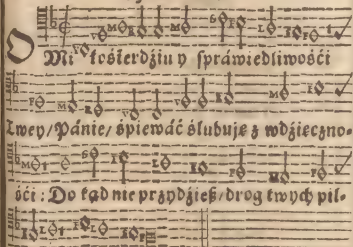 O Miłośierdźiu y spráwiedliwośći
Twey / Pánie / śpiewáć ślubuję z wdźięczno-
śći : Do kąd nie przydźieß / drog twych pil-